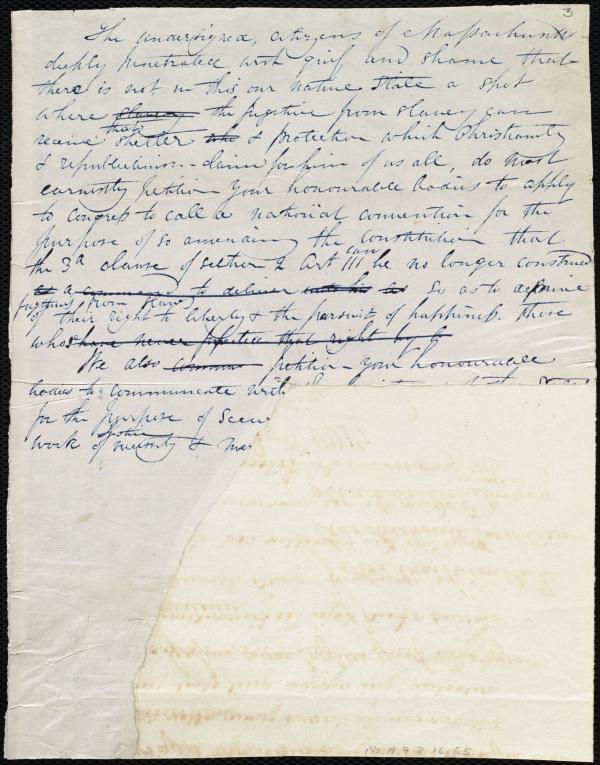 3
The undersigned, citizens of Massachusetts
deeply penetrated with grief and shame that
there is not in this our native State a spot
where slavery the fugitive from slavery can
receive that shelter & protection which Christianity
& republicanism claim for him of us all, do most
earnestly petition your honourable bodies to apply
to congress to call a national convention for the
purpose of so amending the constitution that
the 3d clause of section 2 Art III can be no longer construed
to a command to deliver so as to deprive
fugitives from slavery
of their right to liberty & the pursuit of happiness. those
who have never forfeited that right by
We also petition your honourable
bodies to communicate with
for the purpose of secur
work of necessity & mer
Ms. A. 9. 2. 16. 55